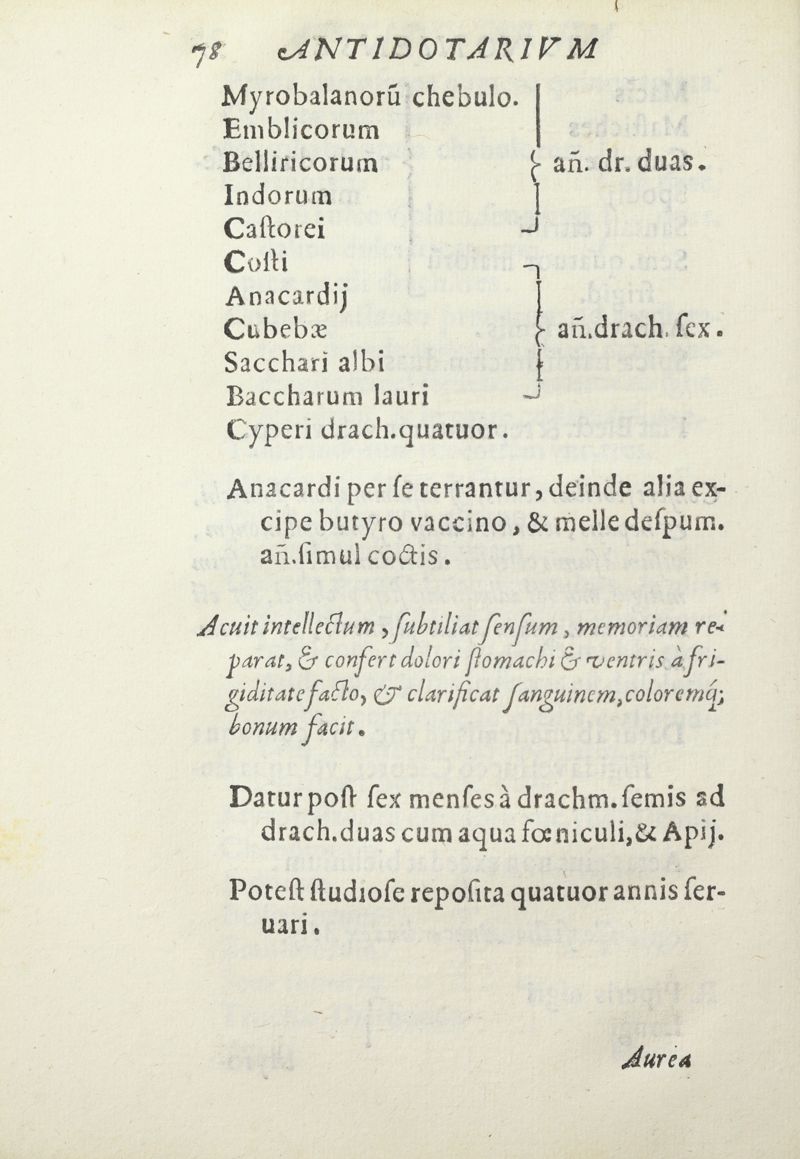 78 ANTIDOTARIVM
Myrobalanorū chebulo.
Emblicorum
Belliricorum
añ. dr. duas.
Indorum
Caſtorei
Coſti
Anacardij
Cubebæ
añ.drach. ſex.
Sacchari albi
Baccharum lauri
Cyperi drach.quatuor.
Anacardi per ſe terrantur, deinde alia ex-
cipe butyro vaccino, & melle deſpum.
añ.ſimul coctis.
Acuit intellectum, ſubtiliat ſenſum, memoriam re-
parat, & confert dolori ſtomachi & ventris à fri-
giditate facto, & clarificat ſanguinem, coloremq;
bonum facit.
Datur poſt ſex menſes à drachm.ſemis ad
drach.duas cum aqua fœniculi,& Apij.
Poteſt ſtudioſe repoſita quatuor annis ſer-
uari.
Aurea